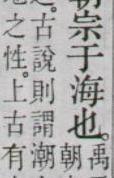 朝宗于海也。
禹
朝
古說則謂潮
之性。上古有